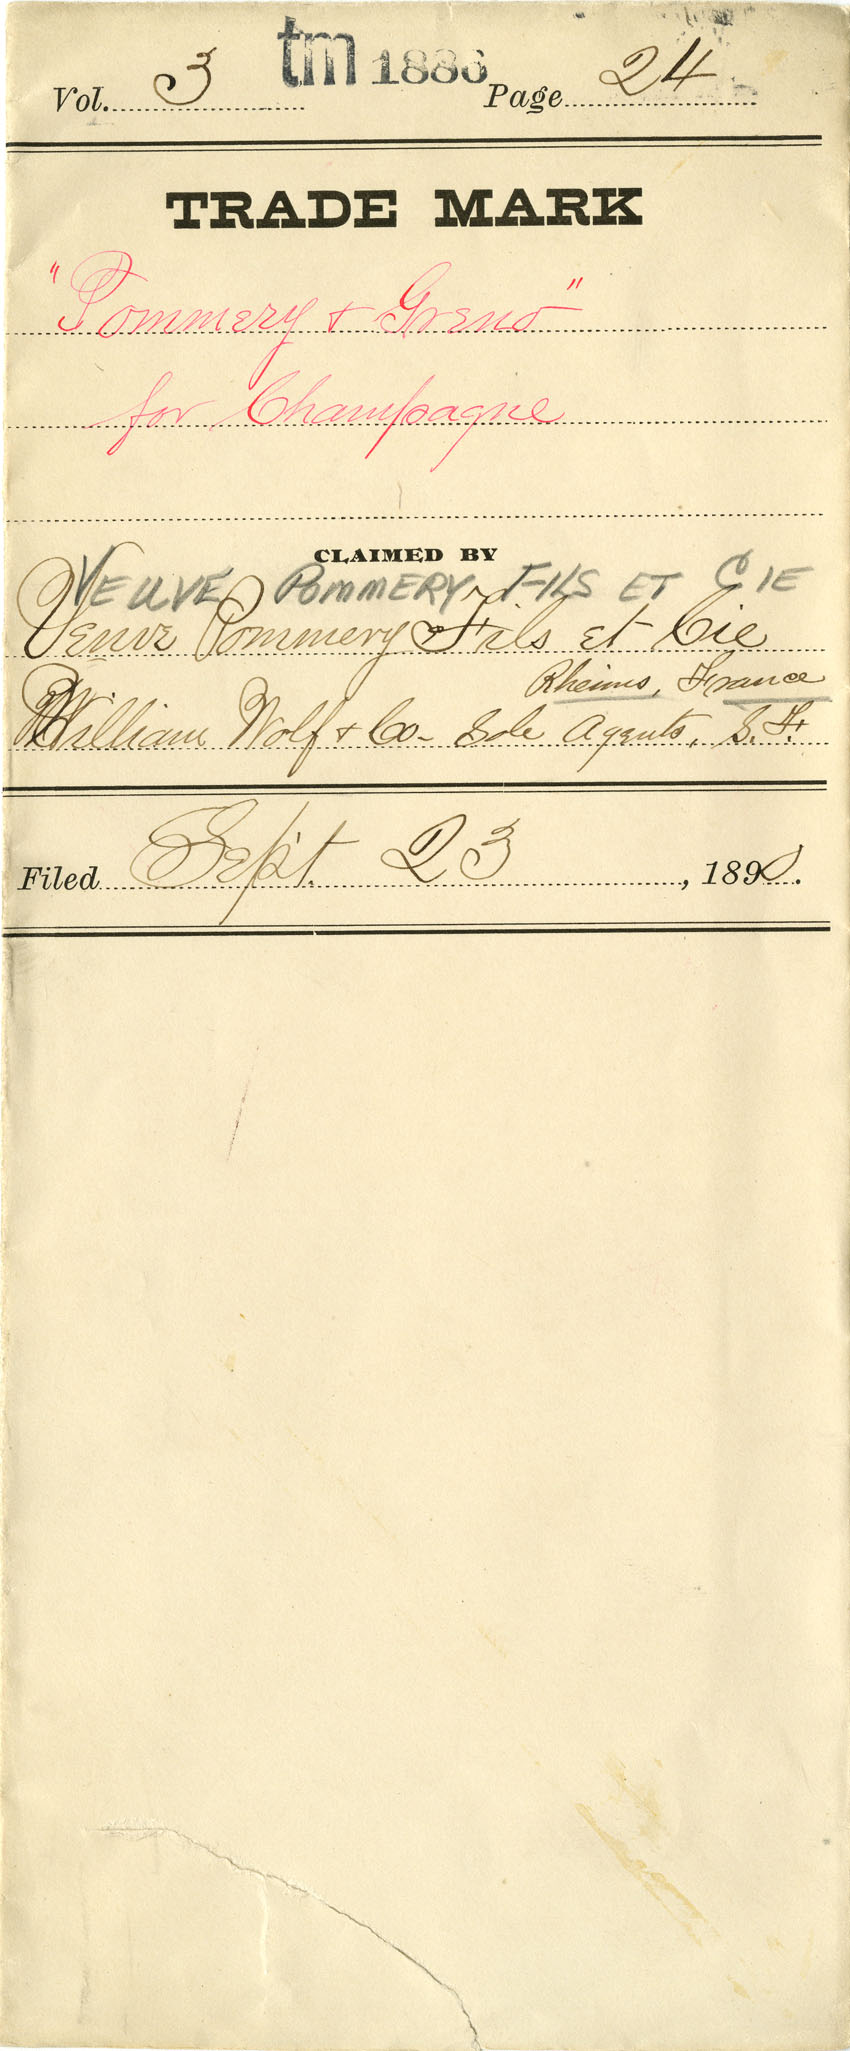 Vol. 3 tm 1886 Page 24
TRADE MARK
"Pommery & Greno"
for Champagne
CLAIMED BY
VEUVE POMMERY FILS ET CIE
Veuve Pommery & Fils et Cie
Rheims, France
William Wolf & Co - Sole Agents, S. F.
Filed Sept. 23, 1890.